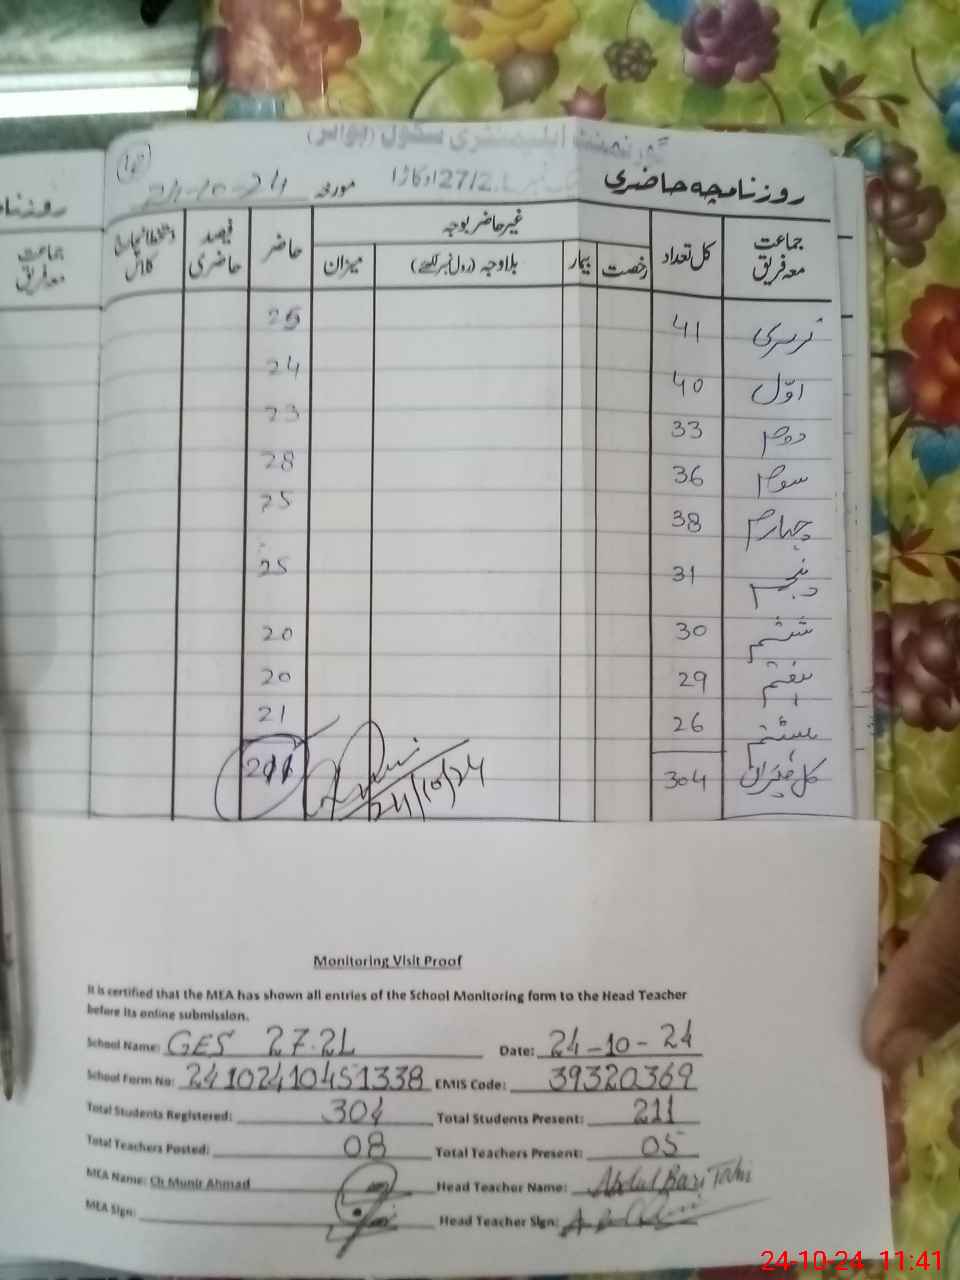 گورنمنٹ ایلیمنٹری سکول (بوائز)
روزنامچہ حاضری 27/2.L اوکاڑا مورخہ 24-10-24
جماعت معہ فریق کل تعداد غیر حاضر بوجہ حاضر فیصد حاضری
رخصت بیمار بلاوجہ (رول نمبر لکھئے) میزان
نرسری 41 25
اوّل 40 24
دوم 33 23
سوم 36 28
چہارم 38 25
پنجم 31 25
ششم 30 20
ہفتم 29 20
ہشتم 26 21
کل میزان 304 211
24/10/24
روزنا
جماعت
معہ فریق
Monitoring Visit Proof
It is certified that the MEA has shown all entries of the School Monitoring form to the Head Teacher
before its online submission.
School Name: GES 27.2L Date: 24-10-24
School Form No: 24102410451338 EMIS Code: 39320369
Total Students Registered: 304 Total Students Present: 211
Total Teachers Posted: 08 Total Teachers Present: 05
MEA Name: Ch Munir Ahmad Head Teacher Name: Abdul Bari Tahir
MEA Sign: Head Teacher Sign:
24-10-24 11:41